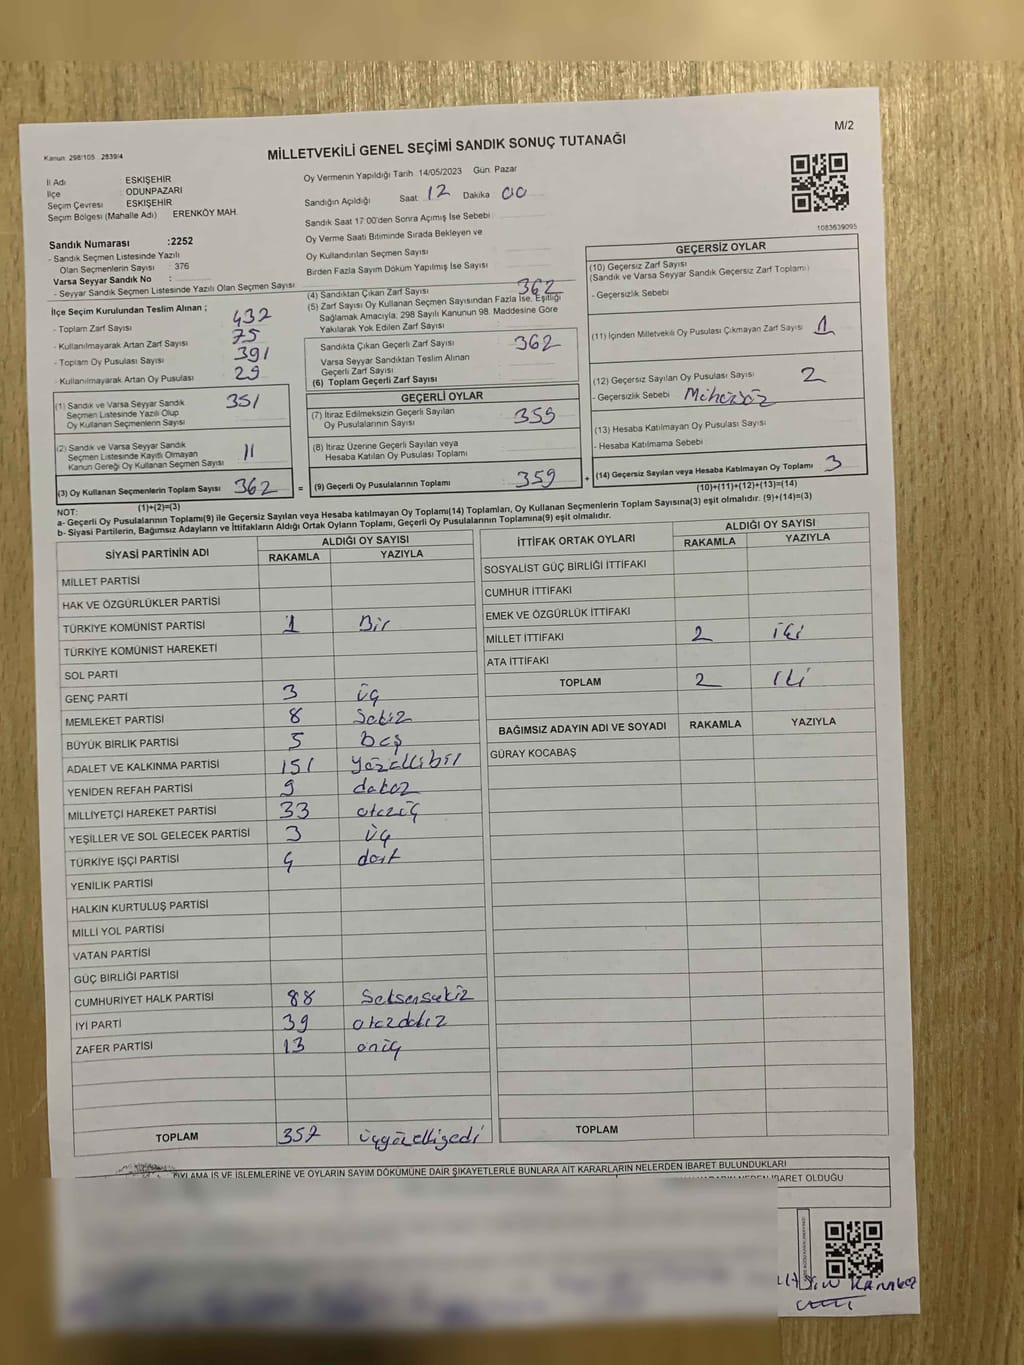 M/2
Kanun: 298/105 2839/4
MİLLETVEKİLİ GENEL SEÇİMİ SANDIK SONUÇ TUTANAĞI
İl Adı : ESKİŞEHİR
İlçe : ODUNPAZARI
Seçim Çevresi : ESKİŞEHİR
Seçim Bölgesi (Mahalle Adı) ERENKÖY MAH.
Sandık Numarası :2252
- Sandık Seçmen Listesinde Yazılı
Olan Seçmenlerin Sayısı : 376
Varsa Seyyar Sandık No :
- Seyyar Sandık Seçmen Listesinde Yazılı Olan Seçmen Sayısı
İlçe Seçim Kurulundan Teslim Alınan ;
- Toplam Zarf Sayısı 432
- Kullanılmayarak Artan Zarf Sayısı 75
- Toplam Oy Pusulası Sayısı 391
- Kullanılmayarak Artan Oy Pusulası 29
(1) Sandık ve Varsa Seyyar Sandık
Seçmen Listesinde Yazılı Olup
Oy Kullanan Seçmenlerin Sayısı 351
(2) Sandık ve Varsa Seyyar Sandık
Seçmen Listesinde Kayıtlı Olmayan
Kanun Gereği Oy Kullanan Seçmen Sayısı 11
(3) Oy Kullanan Seçmenlerin Toplam Sayısı 362 =
(1)+(2)=(3)
Oy Vermenin Yapıldığı Tarih 14/05/2023 Gün: Pazar
Sandığın Açıldığı Saat 12 Dakika 00
Sandık Saat 17:00'den Sonra Açımış İse Sebebi
Oy Verme Saati Bitiminde Sırada Bekleyen ve
Oy Kullandırılan Seçmen Sayısı
Birden Fazla Sayım Döküm Yapılmış İse Sayısı
(4) Sandıktan Çıkan Zarf Sayısı 362
(5) Zarf Sayısı Oy Kullanan Seçmen Sayısından Fazla İse, Eşitliği
Sağlamak Amacıyla, 298 Sayılı Kanunun 98. Maddesine Göre
Yakılarak Yok Edilen Zarf Sayısı
Sandıkta Çıkan Geçerli Zarf Sayısı 362
Varsa Seyyar Sandıktan Teslim Alınan
Geçerli Zarf Sayısı
(6) Toplam Geçerli Zarf Sayısı
GEÇERLİ OYLAR
(7) İtiraz Edilmeksizin Geçerli Sayılan
Oy Pusulalarının Sayısı 359
(8) İtiraz Üzerine Geçerli Sayılan veya
Hesaba Katılan Oy Pusulası Toplamı
(9) Geçerli Oy Pusulalarının Toplamı 359 +
1083639095
GEÇERSİZ OYLAR
(10) Geçersiz Zarf Sayısı
(Sandık ve Varsa Seyyar Sandık Geçersiz Zarf Toplamı)
- Geçersizlik Sebebi
(11) İçinden Milletvekili Oy Pusulası Çıkmayan Zarf Sayısı 1
(12) Geçersiz Sayılan Oy Pusulası Sayısı 2
- Geçersizlik Sebebi Mühürsüz
(13) Hesaba Katılmayan Oy Pusulası Sayısı
- Hesaba Katılmama Sebebi
(14) Geçersiz Sayılan veya Hesaba Katılmayan Oy Toplamı 3
(10)+(11)+(12)+(13)=(14)
NOT:
a- Geçerli Oy Pusulalarının Toplamı(9) ile Geçersiz Sayılan veya Hesaba katılmayan Oy Toplamı(14) Toplamları, Oy Kullanan Seçmenlerin Toplam Sayısına(3) eşit olmalıdır. (9)+(14)=(3)
b- Siyasi Partilerin, Bağımsız Adayların ve İttifakların Aldığı Ortak Oyların Toplamı, Geçerli Oy Pusulalarının Toplamına(9) eşit olmalıdır.
SİYASİ PARTİNİN ADI ALDIĞI OY SAYISI
RAKAMLA YAZIYLA
MİLLET PARTİSİ
HAK VE ÖZGÜRLÜKLER PARTİSİ
TÜRKİYE KOMÜNİST PARTİSİ 1 Bir
TÜRKİYE KOMÜNİST HAREKETİ
SOL PARTİ
GENÇ PARTİ 3 üç
MEMLEKET PARTİSİ 8 Sekiz
BÜYÜK BİRLİK PARTİSİ 5 beş
ADALET VE KALKINMA PARTİSİ 151 yüzellibir
YENİDEN REFAH PARTİSİ 9 dokuz
MİLLİYETÇİ HAREKET PARTİSİ 33 otuzüç
YEŞİLLER VE SOL GELECEK PARTİSİ 3 üç
TÜRKİYE İŞÇİ PARTİSİ 4 dört
YENİLİK PARTİSİ
HALKIN KURTULUŞ PARTİSİ
MİLLİ YOL PARTİSİ
VATAN PARTİSİ
GÜÇ BİRLİĞİ PARTİSİ
CUMHURİYET HALK PARTİSİ 88 Seksensekiz
İYİ PARTİ 39 otuzdokuz
ZAFER PARTİSİ 13 onüç
TOPLAM 357 üçyüzelliyedi
İTTİFAK ORTAK OYLARI ALDIĞI OY SAYISI
RAKAMLA YAZIYLA
SOSYALİST GÜÇ BİRLİĞİ İTTİFAKI
CUMHUR İTTİFAKI
EMEK VE ÖZGÜRLÜK İTTİFAKI
MİLLET İTTİFAKI 2 iki
ATA İTTİFAKI
TOPLAM 2 iki
BAĞIMSIZ ADAYIN ADI VE SOYADI RAKAMLA YAZIYLA
GÜRAY KOCABAŞ
TOPLAM
OYLAMA İŞ VE İŞLEMLERİNE VE OYLARIN SAYIM DÖKÜMÜNE DAİR ŞİKAYETLERLE BUNLARA AİT KARARLARIN NELERDEN İBARET BULUNDUKLARI
İBARET OLDUĞU